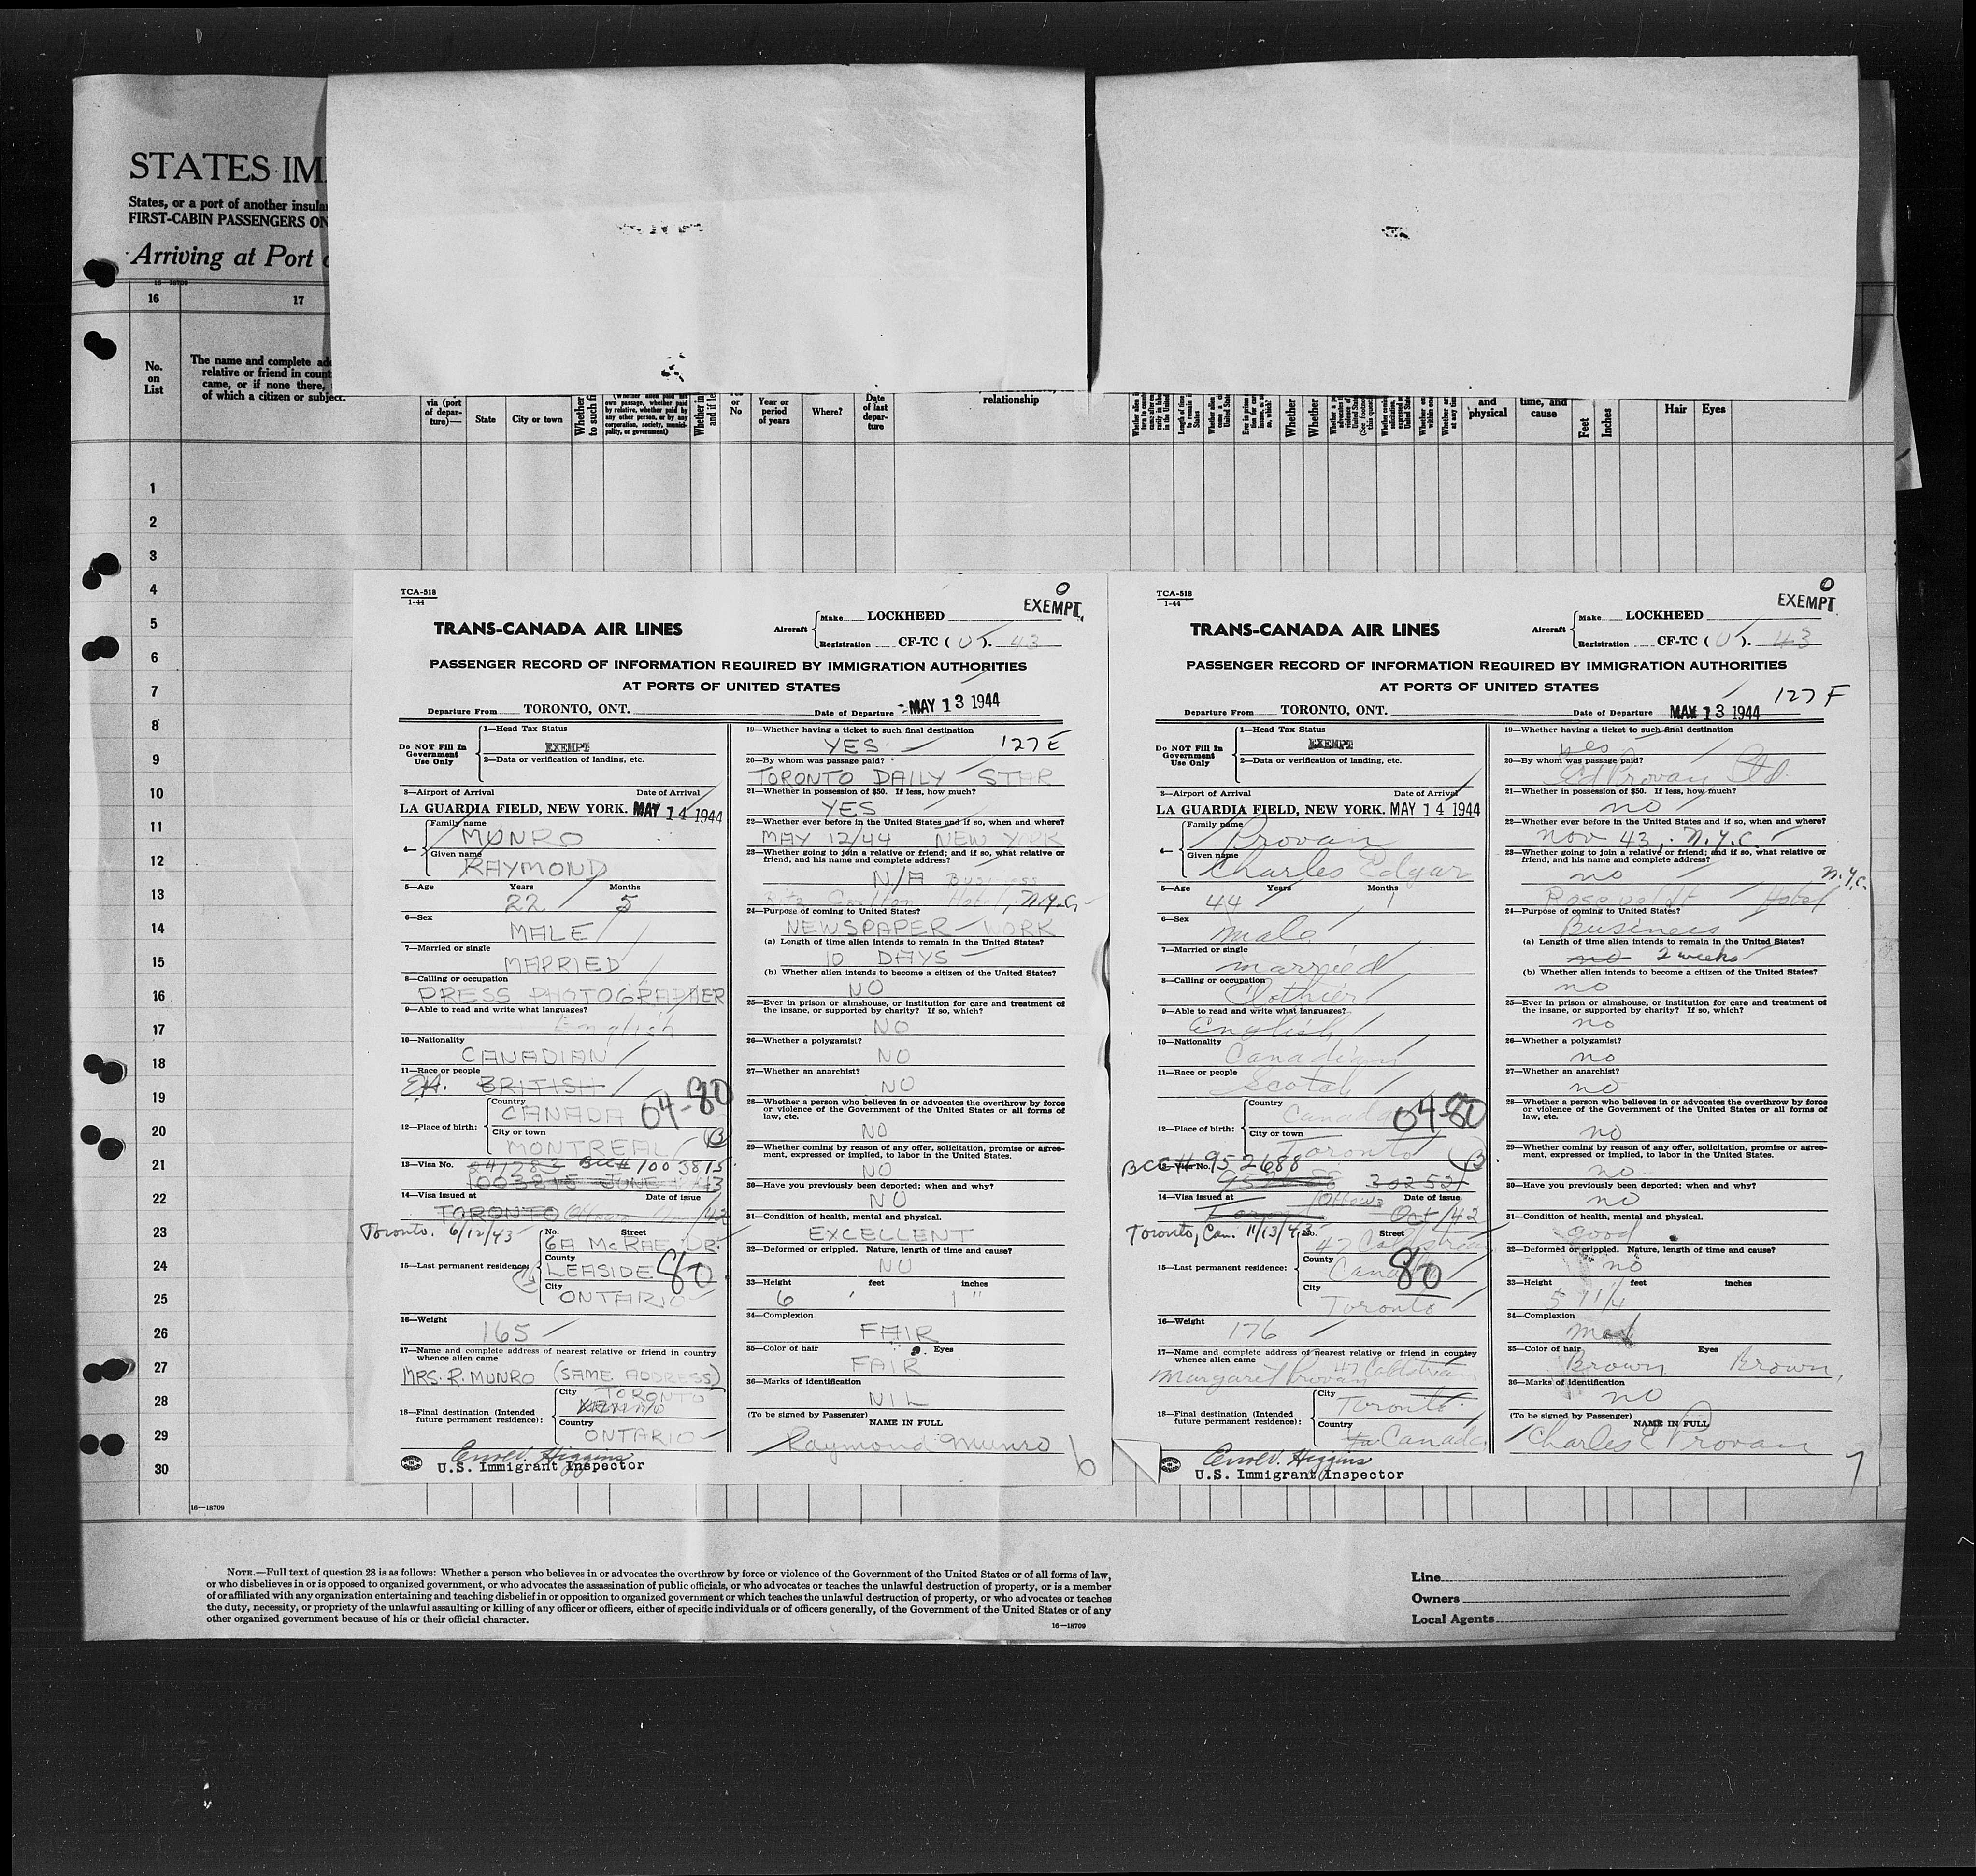 STATES IM
States, or a port of another insula
FIRST-CABIN PASSENGERS ON
Arriving at Port
16—18709
16
17
No.
on
List
The name and complete ad
relative or friend in count
came, or if none there,
of which a citizen or subject.
via (port
of depar-
ture)—
State
City or town
Whether
to such fi
(Whether alien paid his
own passage, whether paid
by relative, whether paid by
any other person, or by any
corporation, society, munici-
pality, or government)
Whether in
and if le
or
No
Year or
period
of years
Where?
Date
of last
depar-
ture
relationship
and
physical
time, and
cause
Feet
Inches
Hair
Eyes
1
2
3
4
5
6
7
8
9
10
11
12
13
14
15
16
17
18
19
20
21
22
23
24
25
26
27
28
29
30
16—18709
TCA-518
1-44
O
EXEMPT
TRANS-CANADA AIR LINES
Aircraft
Make LOCKHEED
Registration CF-TC (U). 43
PASSENGER RECORD OF INFORMATION REQUIRED BY IMMIGRATION AUTHORITIES
AT PORTS OF UNITED STATES
Departure From TORONTO, ONT. Date of Departure MAY 13 1944
Do NOT Fill In
Government
Use Only
1—Head Tax Status
EXEMPT
2—Data or verification of landing, etc.
3—Airport of Arrival Date of Arrival
LA GUARDIA FIELD, NEW YORK. MAY 14 1944
4—
Family name
MUNRO
Given name
RAYMOND
5—Age Years Months
22 5
6—Sex
MALE
7—Married or single
MARRIED
8—Calling or occupation
PRESS PHOTOGRAPHER
9—Able to read and write what languages?
English
10—Nationality
CANADIAN
11—Race or people
BRITISH
12—Place of birth:
Country
CANADA 04-80
City or town
MONTREAL B
13—Visa No. 841283 BCC# 1003815
1003815 JUNE 43
14—Visa issued at Date of issue
TORONTO
Toronto. 6/12/43
15—Last permanent residence:
No. Street
6A McRAE DR.
County
LEASIDE 80
City
ONTARIO
16—Weight
165
17—Name and complete address of nearest relative or friend in country
whence alien came
MRS. R. MUNRO (SAME ADDRESS)
18—Final destination (Intended
future permanent residence):
City
TORONTO
Country
ONTARIO
Errol V. Higgins
U.S. Immigrant Inspector
19—Whether having a ticket to such final destination
YES 127E
20—By whom was passage paid?
TORONTO DAILY STAR
21—Whether in possession of $50. If less, how much?
YES
22—Whether ever before in the United States and if so, when and where?
MAY 12/44 NEW YORK
23—Whether going to join a relative or friend; and if so, what relative or
friend, and his name and complete address?
N/A Business
Ritz Carlton Hotel, N.Y.C.
24—Purpose of coming to United States?
NEWSPAPER WORK
(a) Length of time alien intends to remain in the United States?
10 DAYS
(b) Whether alien intends to become a citizen of the United States?
NO
25—Ever in prison or almshouse, or institution for care and treatment of
the insane, or supported by charity? If so, which?
NO
26—Whether a polygamist?
NO
27—Whether an anarchist?
NO
28—Whether a person who believes in or advocates the overthrow by force
or violence of the Government of the United States or all forms of
law, etc.
NO
29—Whether coming by reason of any offer, solicitation, promise or agree-
ment, expressed or implied, to labor in the United States.
NO
30—Have you previously been deported; when and why?
NO
31—Condition of health, mental and physical.
EXCELLENT
32—Deformed or crippled. Nature, length of time and cause?
NO
33—Height feet inches
6 ' 1 "
34—Complexion
FAIR
35—Color of hair Eyes
FAIR
36—Marks of identification
NIL
(To be signed by Passenger) NAME IN FULL
Raymond Munro
6
TCA-518
1-44
O
EXEMPT
TRANS-CANADA AIR LINES
Aircraft
Make LOCKHEED
Registration CF-TC (U). 43
PASSENGER RECORD OF INFORMATION REQUIRED BY IMMIGRATION AUTHORITIES
AT PORTS OF UNITED STATES
127 F
Departure From TORONTO, ONT. Date of Departure MAY 13 1944
Do NOT Fill In
Government
Use Only
1—Head Tax Status
EXEMPT
2—Data or verification of landing, etc.
3—Airport of Arrival Date of Arrival
LA GUARDIA FIELD, NEW YORK. MAY 14 1944
4—
Family name
Provan
Given name
Charles Edgar
5—Age Years Months
44 1
6—Sex
Male
7—Married or single
married
8—Calling or occupation
Clothier
9—Able to read and write what languages?
English
10—Nationality
Canadian
11—Race or people
Scotch
12—Place of birth:
Country
Canada 04-80
City or town
Toronto B
BCC # 952680
13—Visa No.
30252
14—Visa issued at Ottawa Date of issue
Oct/42
Toronto, Can. 11/13/43
15—Last permanent residence:
No. Street
47 Coldstream
County
Canada 80
City
Toronto
16—Weight
176
17—Name and complete address of nearest relative or friend in country
whence alien came
Margaret Provan 47 Coldstream
18—Final destination (Intended
future permanent residence):
City
Toronto
Country
Canada
Errol V. Higgins
U.S. Immigrant Inspector
19—Whether having a ticket to such final destination
yes
20—By whom was passage paid?
Ed Provan Ltd.
21—Whether in possession of $50. If less, how much?
no
22—Whether ever before in the United States and if so, when and where?
Nov 43, N.Y.C.
23—Whether going to join a relative or friend; and if so, what relative or
friend, and his name and complete address?
no N.Y.C.
Rosevelt Hotel
24—Purpose of coming to United States?
Business
(a) Length of time alien intends to remain in the United States?
no 2 weeks
(b) Whether alien intends to become a citizen of the United States?
no
25—Ever in prison or almshouse, or institution for care and treatment of
the insane, or supported by charity? If so, which?
no
26—Whether a polygamist?
no
27—Whether an anarchist?
no
28—Whether a person who believes in or advocates the overthrow by force
or violence of the Government of the United States or all forms of
law, etc.
no
29—Whether coming by reason of any offer, solicitation, promise or agree-
ment, expressed or implied, to labor in the United States.
no
30—Have you previously been deported; when and why?
no
31—Condition of health, mental and physical.
good
32—Deformed or crippled. Nature, length of time and cause?
no
33—Height feet inches
5 11/4
34—Complexion
Med
35—Color of hair Eyes
Brown Brown
36—Marks of identification
no
(To be signed by Passenger) NAME IN FULL
Charles E Provan
7
NOTE.—Full text of question 28 is as follows: Whether a person who believes in or advocates the overthrow by force or violence of the Government of the United States or of all forms of law,
or who disbelieves in or is opposed to organized government, or who advocates the assassination of public officials, or who advocates or teaches the unlawful destruction of property, or is a member
of or affiliated with any organization entertaining and teaching disbelief in or opposition to organized government or which teaches the unlawful destruction of property, or who advocates or teaches
the duty, necessity, or propriety of the unlawful assaulting or killing of any officer or officers, either of specific individuals or of officers generally, of the Government of the United States or of any
other organized government because of his or their official character.
16—18709
Line
Owners
Local Agents